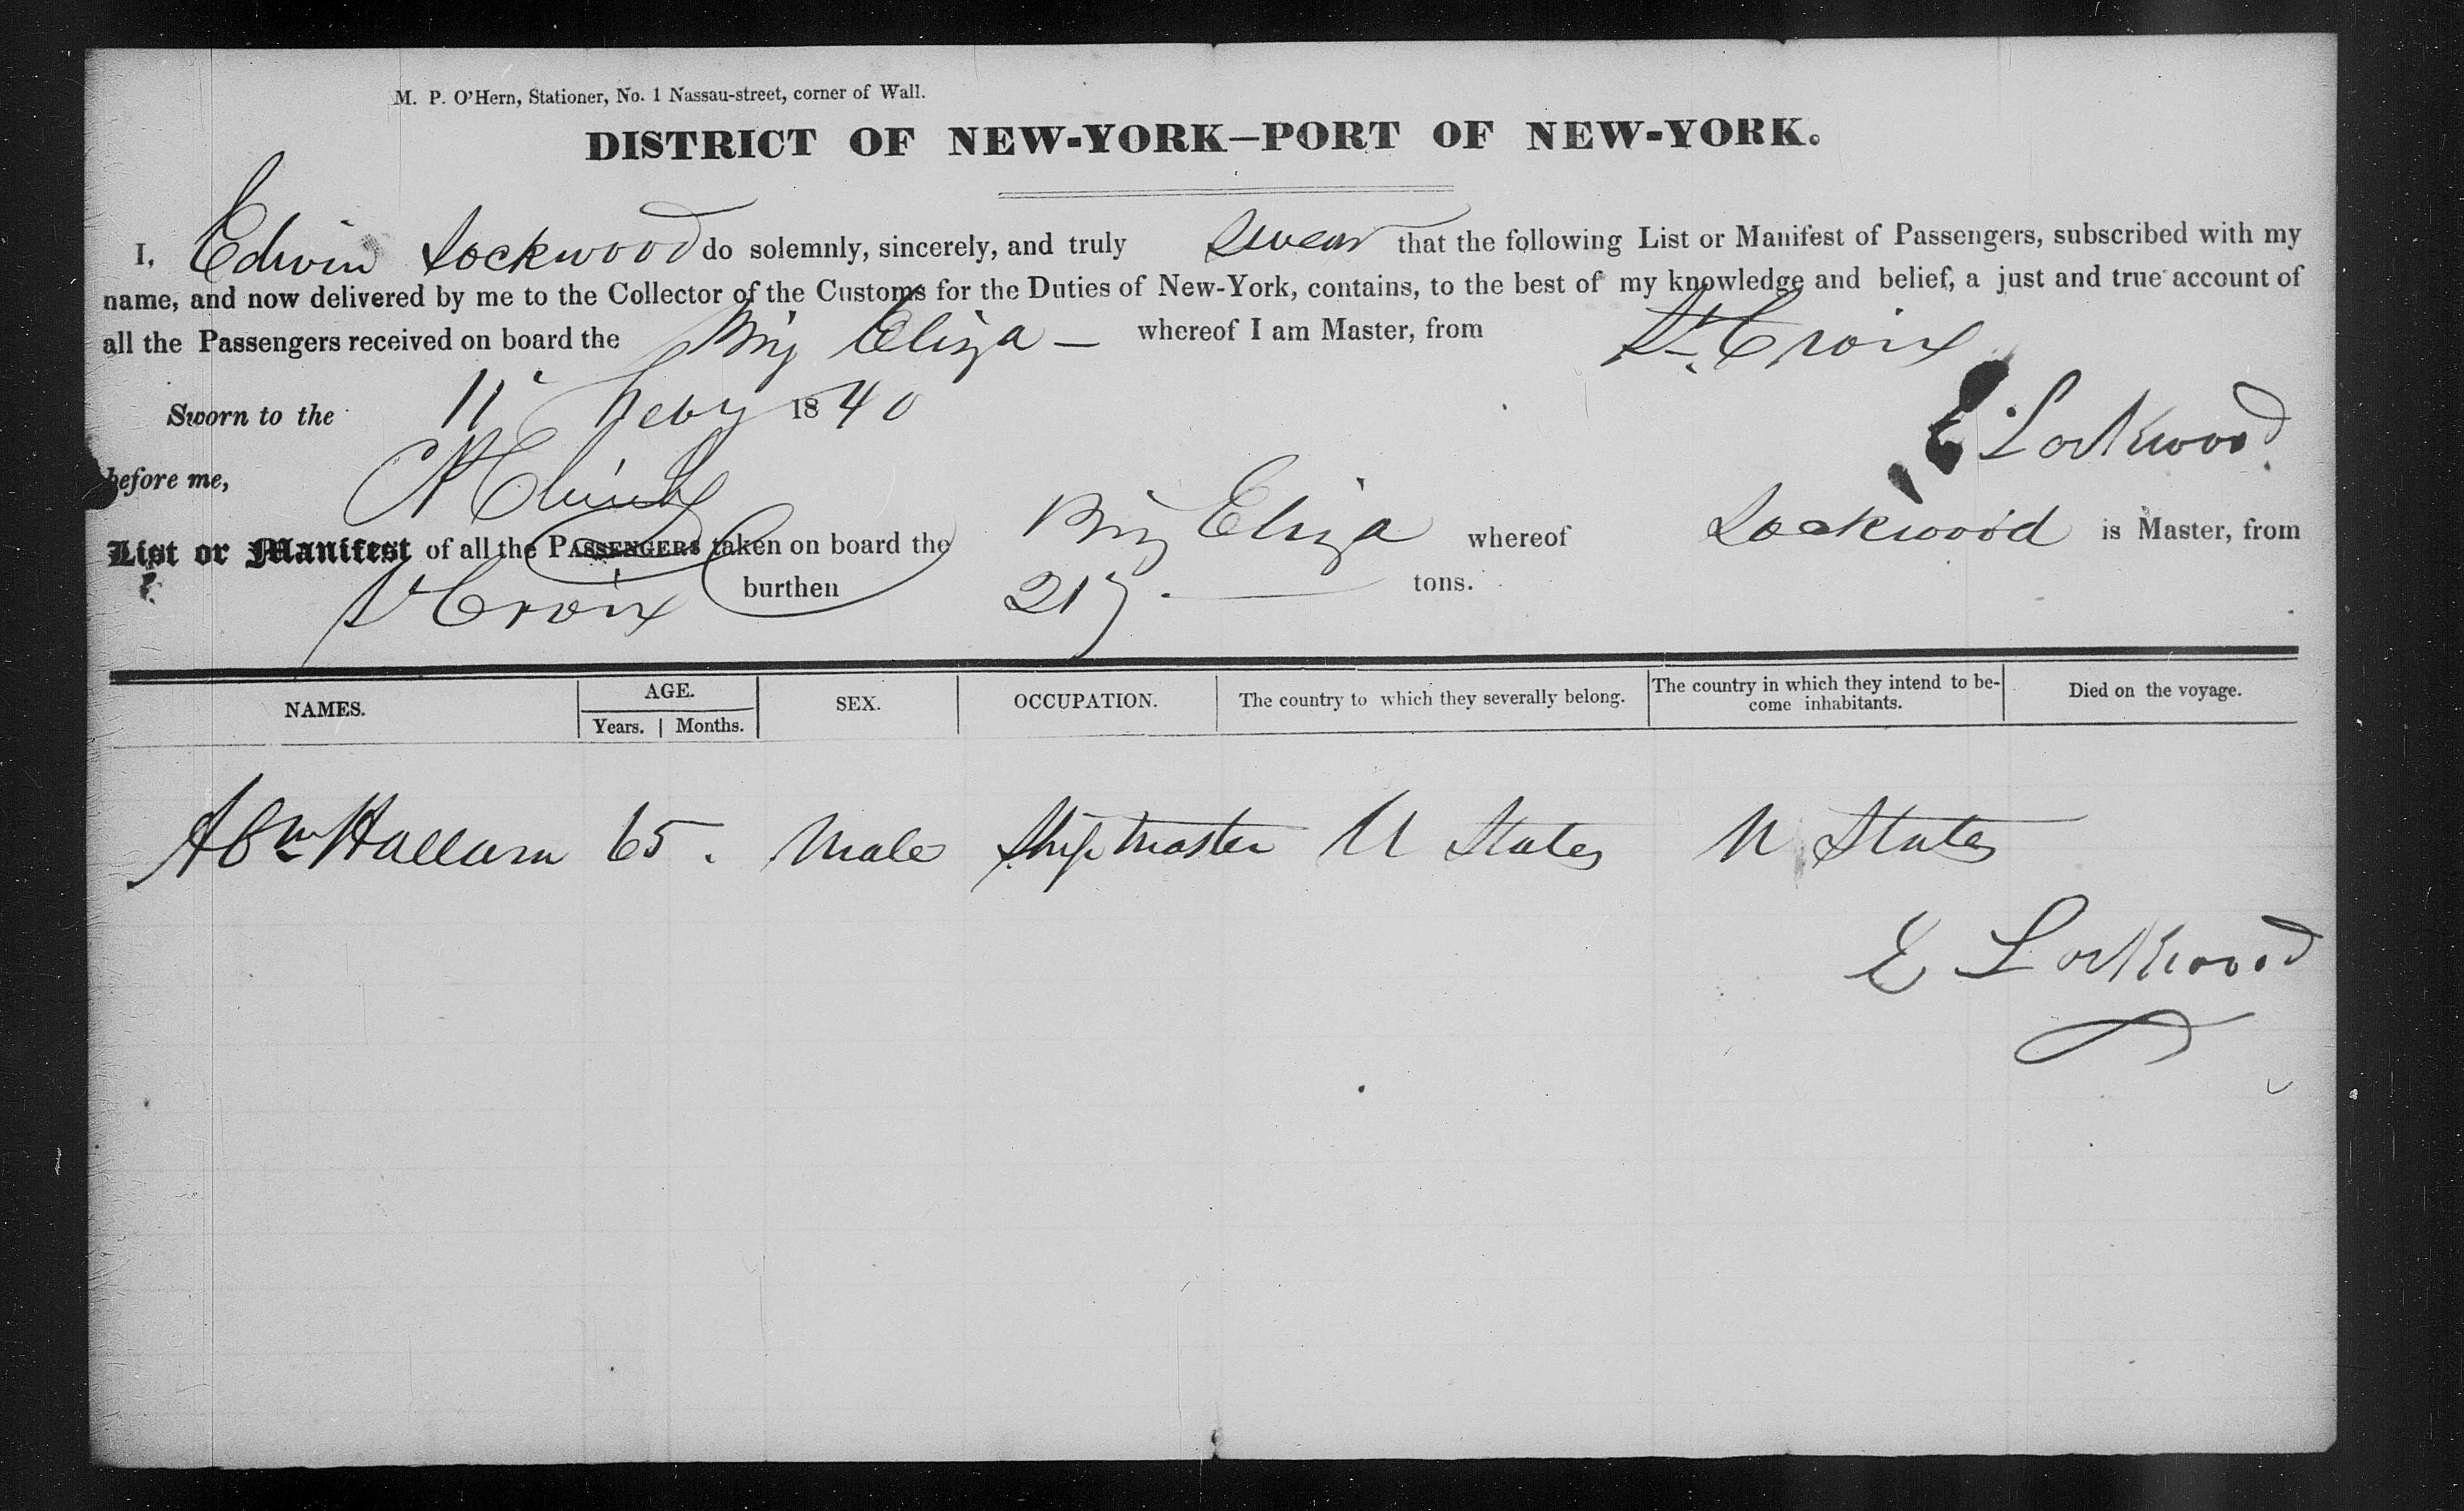 M. P. O'Hern, Stationer, No. 1 Nassau-street, corner of Wall.
DISTRICT OF NEW-YORK—PORT OF NEW-YORK.
I, Edwin Lockwood do solemnly, sincerely, and truly swear that the following List or Manifest of Passengers, subscribed with my
name, and now delivered by me to the Collector of the Customs for the Duties of New-York, contains, to the best of my knowledge and belief, a just and true account of
all the Passengers received on board the Brig Eliza — whereof I am Master, from St. Croix
Sworn to the 11 Feby 1840
E Lockwood
before me,
List or Manifest of all the PASSENGERS taken on board the Brig Eliza whereof Lockwood is Master, from
St Croix burthen 217 tons.
NAMES. AGE. SEX. OCCUPATION. The country to which they severally belong. The country in which they intend to be-
come inhabitants. Died on the voyage.
Years. Months.
Abm Hallam 65. Male Ship Master U States U States
E Lockwood